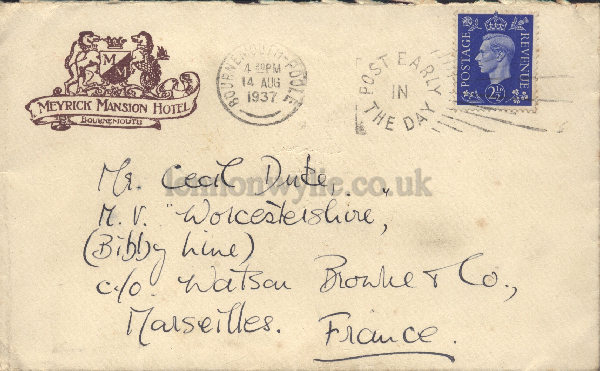 M M
MEYRICK MANSION HOTEL
BOURNEMOUTH
BOURNEMOUTH-POOLE
PM
14 AUG
1937
POST EARLY
IN
THE DAY
POSTAGE
REVENUE
2½D
Mr. Cecil Dute,
M.V. "Worcestershire,"
(Bibby Line)
c/o. Watson Browne & Co.,
Marseilles. France.